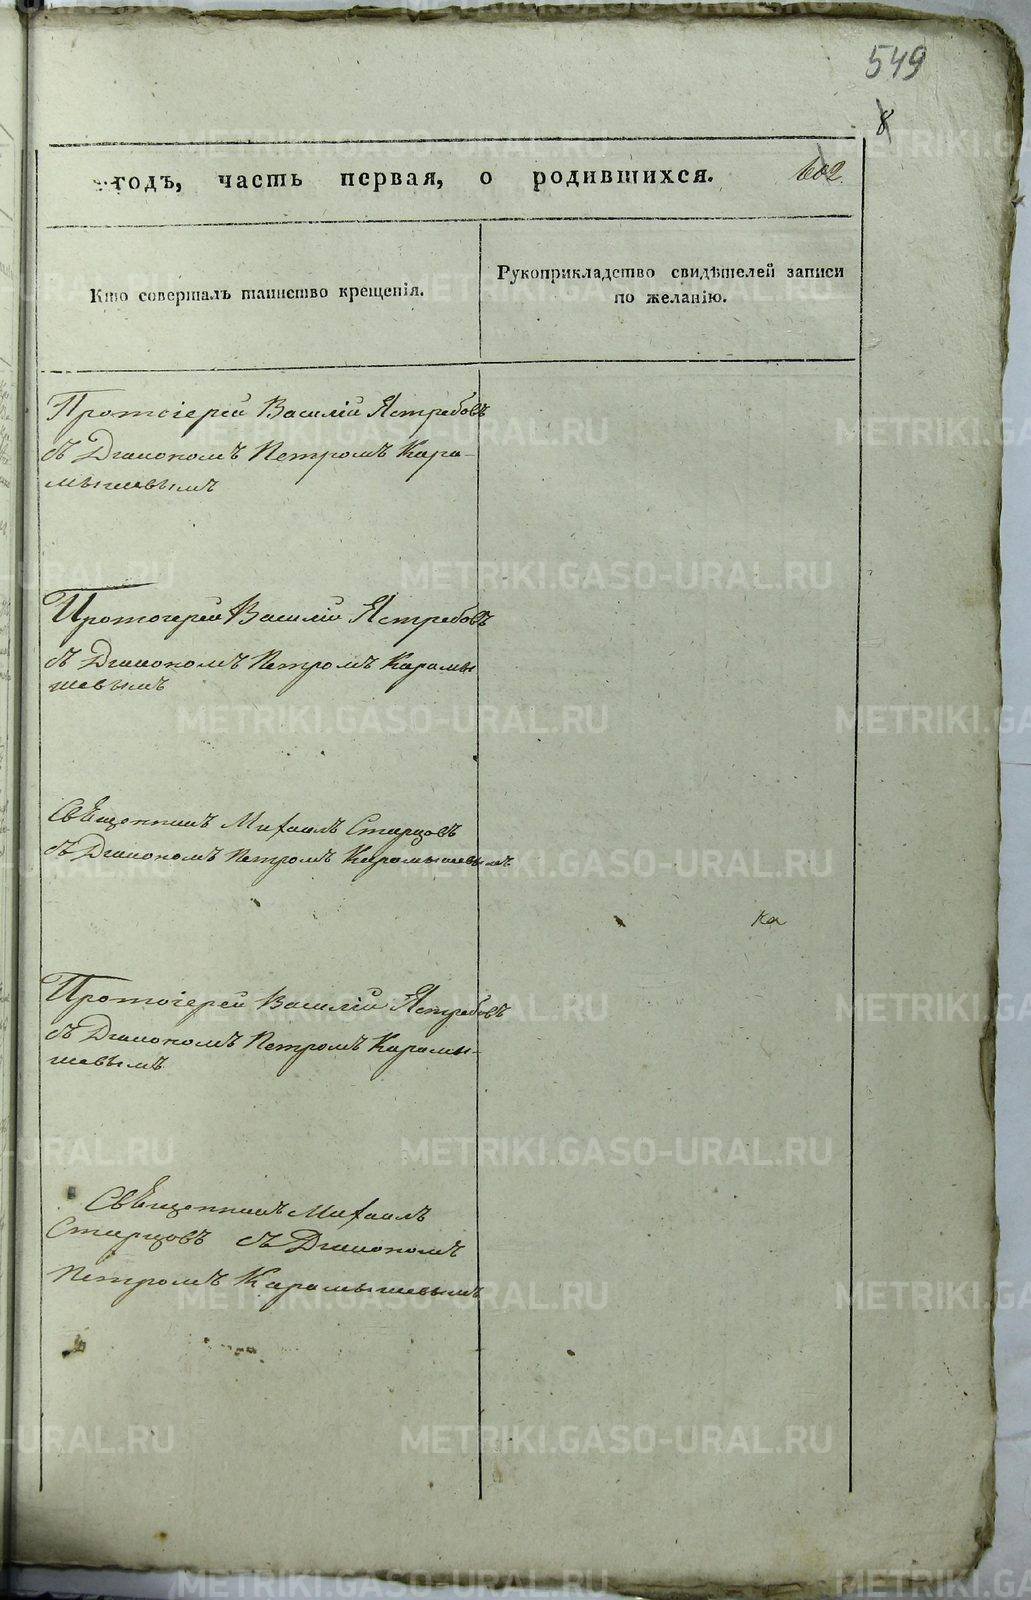 549
8
602
годъ, часть первая, о родившихся.
Кто совершалъ таинство крещенія.
Рукоприкладство свидѣтелей записи
по желанію.
Протоіерей Василій Ястребовъ
съ Діакономъ Петромъ Кара-
мышевымъ
Протоіерей Василій Ястребовъ
съ Діакономъ Петромъ Карамы
шевымъ
Священникъ Михаилъ Старцовъ
съ Діакономъ Петромъ Карамышевымъ
Протоіерей Василій Ястребовъ
съ Діакономъ Петромъ Карамы-
шевымъ
Священникъ Михаилъ
Старцовъ съ Діакономъ
Петромъ Карамышевымъ
METRIKI.GASO-URAL.RU